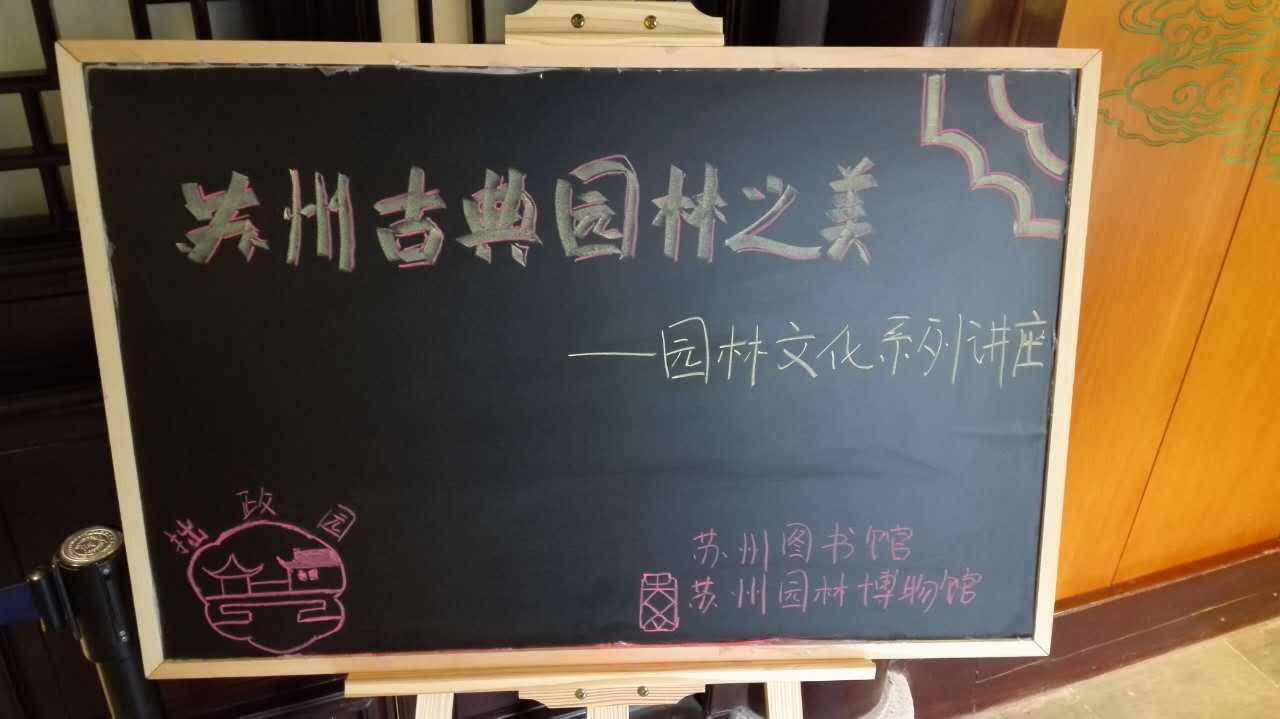 苏州古典园林之美
——园林文化系列讲座
拙政园
苏州图书馆
苏州园林博物馆